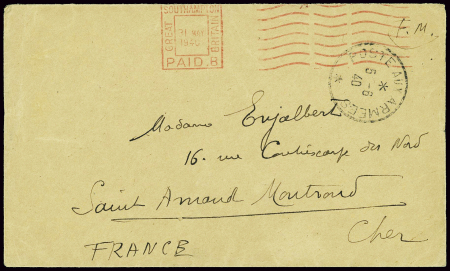 SOUTHAMPTON
GREAT BRITAIN
31 MAY
1940
PAID. 8
F.M.
POSTE AUX ARMEES
5 - 6
40
Madame Enjalbert
16. rue Contrescarpe du Nord
Saint Amand Montrond
Cher
FRANCE